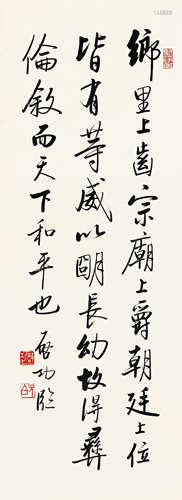 鄉里上齒宗廟上爵朝廷上位
皆有等威以明長幼故得彝
倫敘而天下和平也
啟功臨